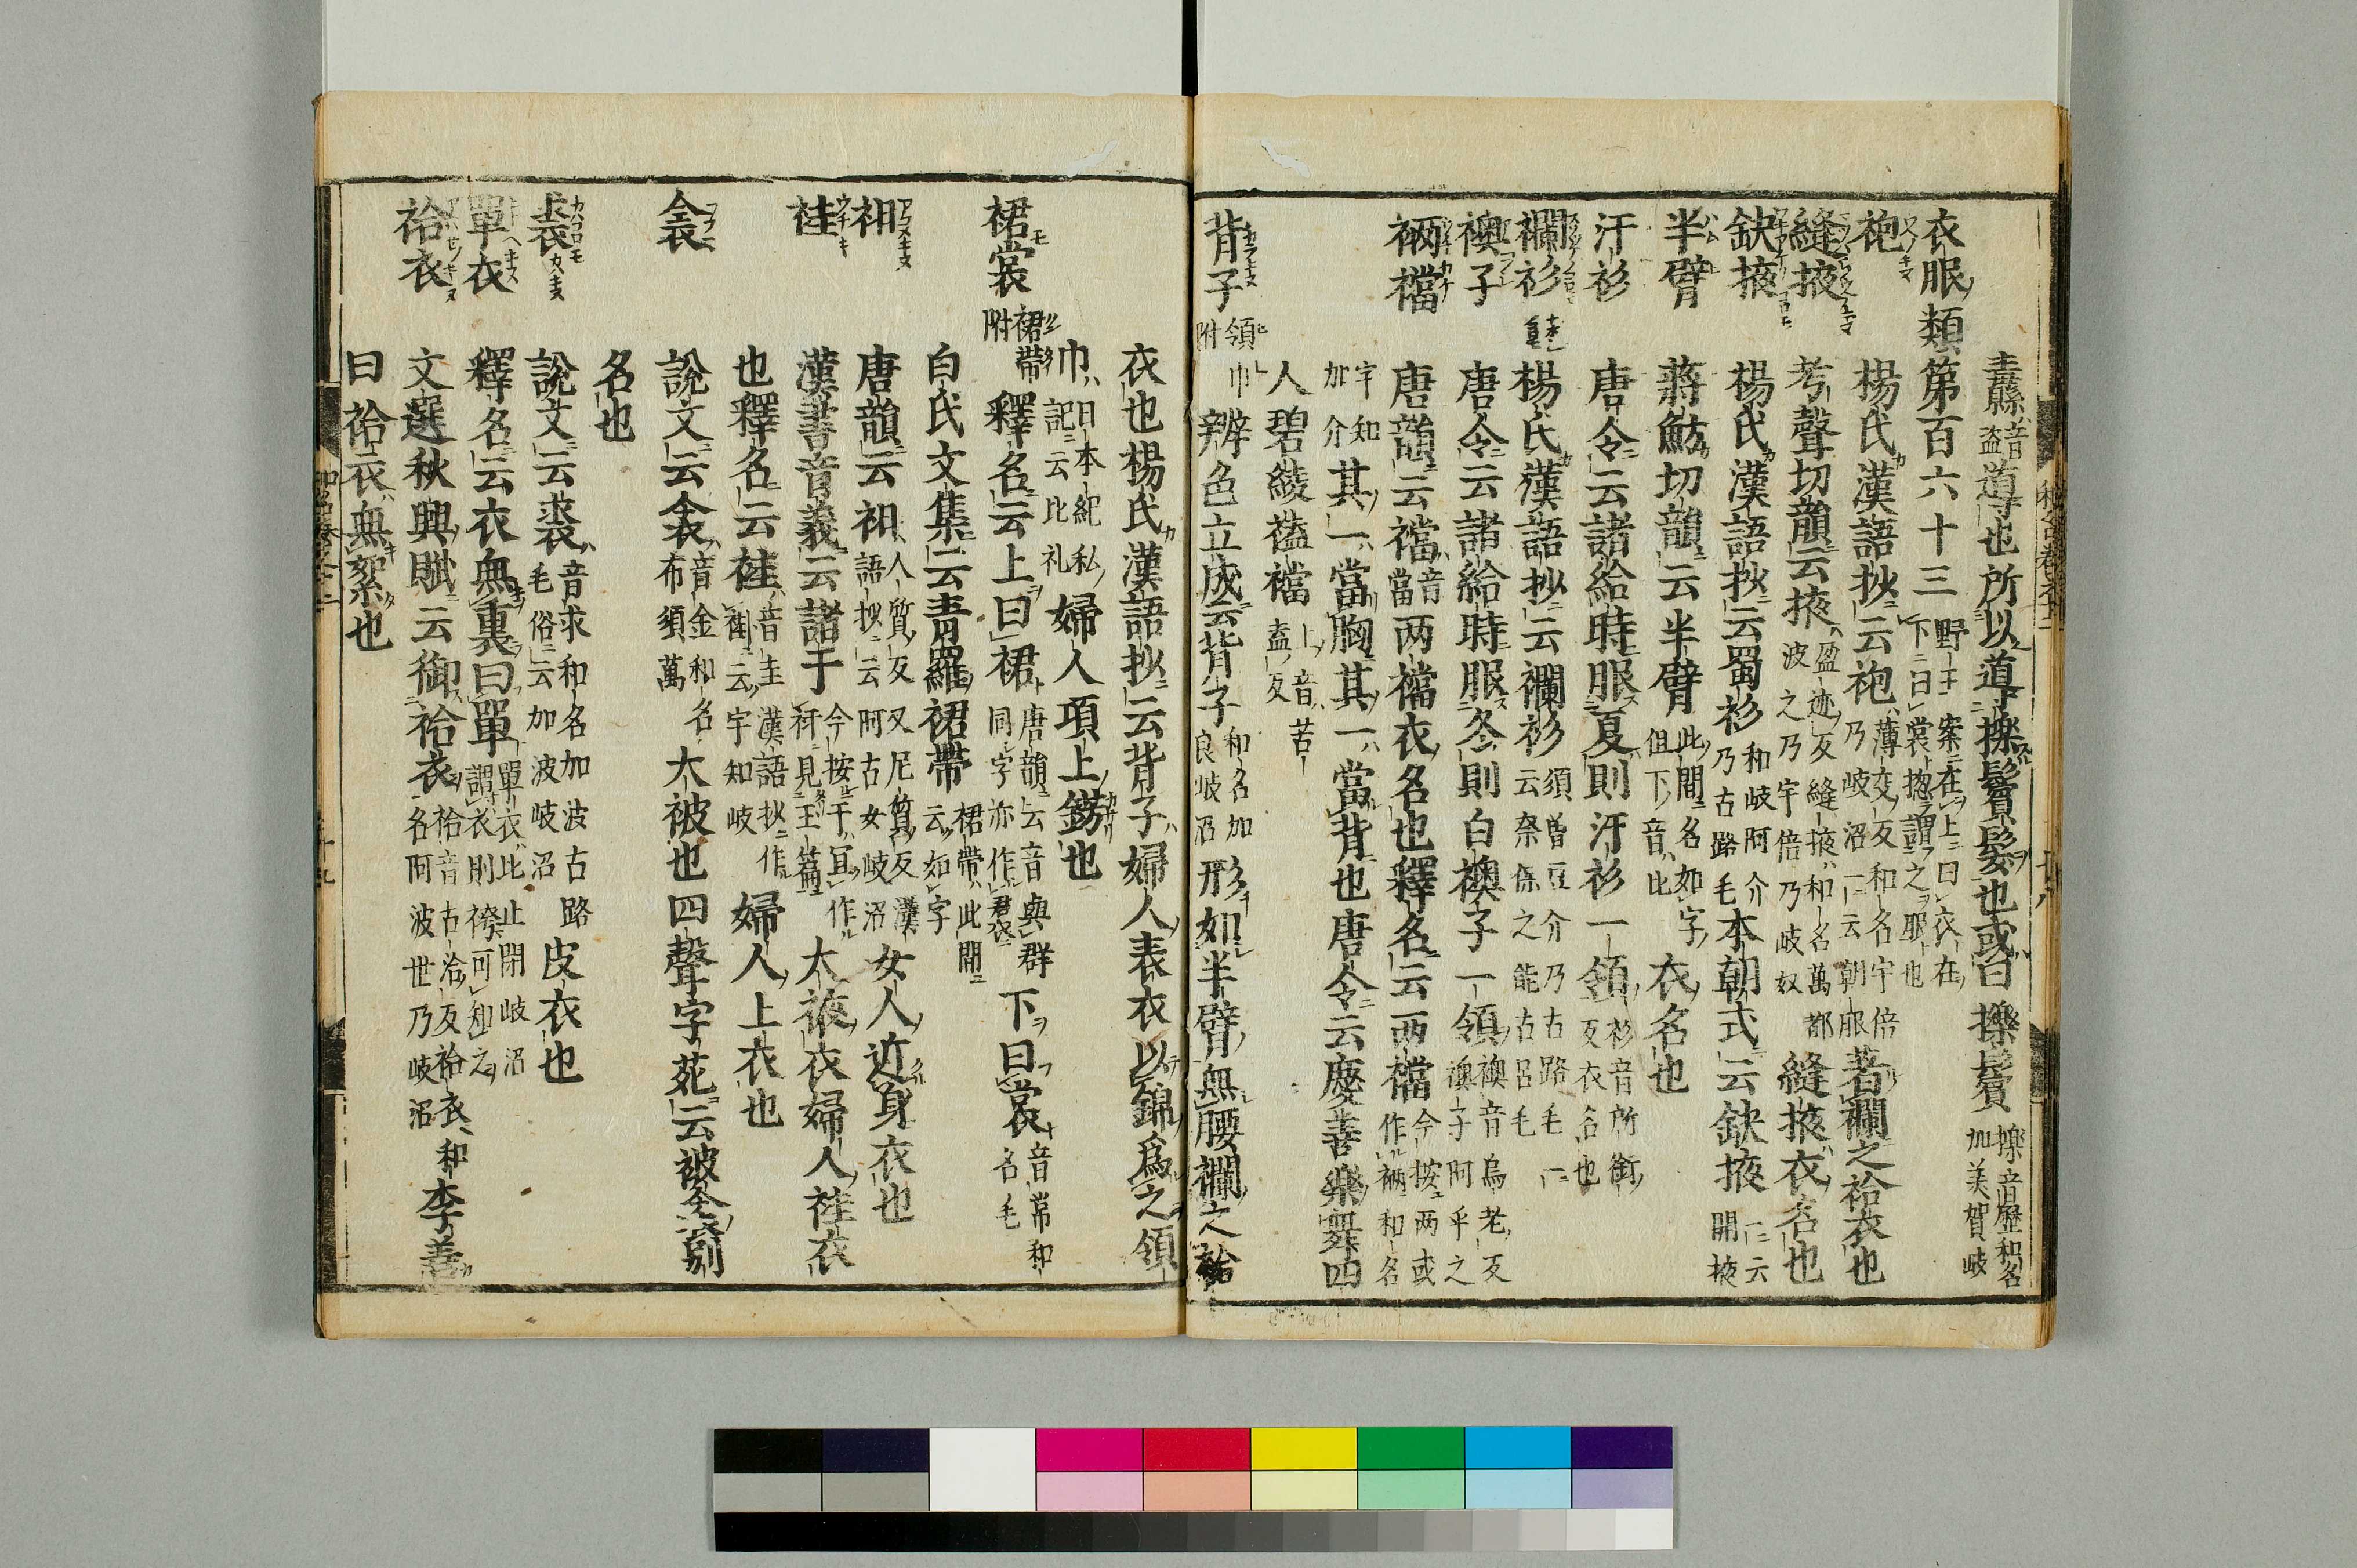 纛音盗導也所以導擽鬢髮也或曰擽鬢擽音歷和名加美賀岐
衣服類第百六十三野王案在上曰衣在下曰裳惣謂之服也
袍 楊氏漢語抄云袍薄交反和名宇倍乃岐沼一云朝服著襴之袷衣也
縫掖 考聲切韻云掖盈迹反縫掖和名萬都波之乃宇倍乃岐奴縫掖衣名也
缺掖 楊氏漢語抄云蜀衫和岐阿介乃古路毛本朝式云缺掖一云開掖
半臂 蔣魴切韻云半臂此間名如字但下音比衣名也
汗衫 唐令云諸給時服夏則汗衫一領衫音所銜反衣名也
襴衫 楊氏漢語抄云襴衫須曾豆介乃古路毛一云奈保之能古呂毛
襖子 唐令云諸給時服冬則白襖子一領襖音烏老反襖子阿乎之
裲襠 唐韻云襠音當两襠衣名也釋名云两襠今按两或作裲和名
宇知加介其一當胸其一當背也唐令云慶善樂舞四
人碧綾襠上音苦盍反
背子領巾附 辨色立成云背子和名加良岐沼形如半臂無腰襴之袷
衣也楊氏漢語抄云背子婦人表衣以錦爲之領
巾日本紀私記云比礼婦人項上錺也
裙裳裙帶附 釋名云上曰裙唐韻云音與群同字亦作帬下曰裳音常和名毛
白氏文集云青羅裙帶裙帶此間云如字
衵 唐韻云衵人質反又尼質反漢語抄云阿古女岐沼女人近身衣也
袿 漢書音義云諸于今按于冝作衧見玉篇大掖衣婦人袿衣
也釋名云袿音圭漢語抄云宇知岐婦人上衣也
衾 說文云衾音金和名布須萬大被也四聲字苑云被衾別
名也
裘 說文云裘音求和名加波古路毛俗云加波岐沼皮衣也
單衣 釋名云衣無裏曰單單衣比止閇岐沼謂衣則袴可知之
袷衣 文選秋興賦云御袷衣袷音古洽反袷衣和名阿波世乃岐沼李善
曰袷衣無絮也